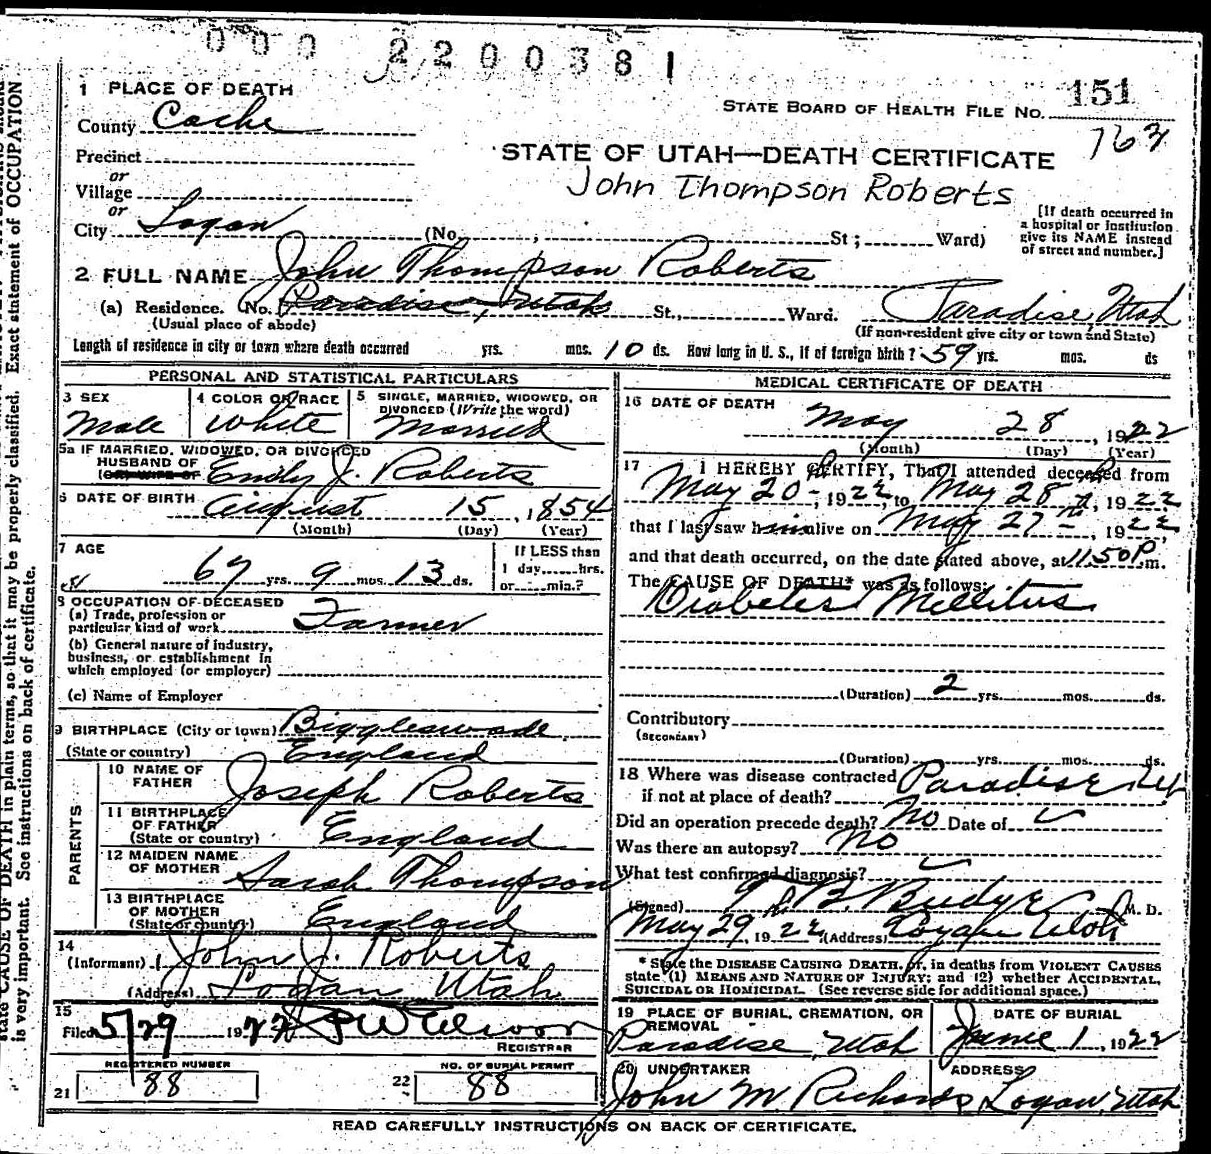 000 2200381
1 PLACE OF DEATH
STATE BOARD OF HEALTH FILE NO. 151
County Cache
763
Precinct
STATE OF UTAH—DEATH CERTIFICATE
or
Village
John Thompson Roberts
or
City Logan (No. , St; Ward)
[If death occurred in
a hospital or institution
give its NAME instead
of street and number.]
2 FULL NAME John Thompson Roberts
(a) Residence. No. Paradise, Utah St., Ward. Paradise, Utah
(Usual place of abode) (If non-resident give city or town and State)
Length of residence in city or town where death occurred yrs. mos. 10 ds. How long in U. S., if of foreign birth? 59 yrs. mos. ds
PERSONAL AND STATISTICAL PARTICULARS
3 SEX
Male
4 COLOR OR RACE
White
5 SINGLE, MARRIED, WIDOWED, OR
DIVORCED (Write the word)
Married
5a IF MARRIED, WIDOWED, OR DIVORCED
HUSBAND OF
(OR) WIFE OF Emily J. Roberts
6 DATE OF BIRTH August 15, 1854
(Month) (Day) (Year)
7 AGE
67 yrs. 9 mos. 13 ds.
If LESS than
1 day......hrs.
or......min.?
8 OCCUPATION OF DECEASED
(a) Trade, profession or
particular kind of work Farmer
(b) General nature of industry,
business, or establishment in
which employed (or employer)
(c) Name of Employer
9 BIRTHPLACE (City or town) Biggleswade
(State or country) England
PARENTS
10 NAME OF
FATHER Joseph Roberts
11 BIRTHPLACE
OF FATHER
(State or country) England
12 MAIDEN NAME
OF MOTHER Sarah Thompson
13 BIRTHPLACE
OF MOTHER
(State or country) England
14
(Informant) John J. Roberts
(Address) Logan Utah
15
Filed 5/29 1922
REGISTRAR
REGISTERED NUMBER
21 88
NO. OF BURIAL PERMIT
22 88
MEDICAL CERTIFICATE OF DEATH
16 DATE OF DEATH
May 28, 1922
(Month) (Day) (Year)
17 I HEREBY CERTIFY, That I attended deceased from
May 20-, 1922, to May 28th, 1922
that I last saw him alive on May 27th, 1922,
and that death occurred, on the date stated above, at 11.50 P.m.
The CAUSE OF DEATH* was as follows:
Diabetes Mellitus
(Duration) 2 yrs. mos. ds.
Contributory
(SECONDARY)
(Duration) yrs. mos. ds.
18 Where was disease contracted
if not at place of death? Paradise Ut
Did an operation precede death? No Date of
Was there an autopsy? No
What test confirmed diagnosis?
(Signed) T. B. Budge M. D.
May 29, 1922 (Address) Logan Utah
* State the DISEASE CAUSING DEATH, or, in deaths from VIOLENT CAUSES
state (1) MEANS AND NATURE OF INJURY; and (2) whether ACCIDENTAL,
SUICIDAL OR HOMICIDAL. (See reverse side for additional space.)
19 PLACE OF BURIAL, CREMATION, OR
REMOVAL
Paradise, Utah
DATE OF BURIAL
June 1, 1922
20 UNDERTAKER
John M. Richards
ADDRESS
Logan, Utah
READ CAREFULLY INSTRUCTIONS ON BACK OF CERTIFICATE.
state CAUSE OF DEATH in plain terms, so that it may be properly classified. Exact statement of OCCUPATION
is very important. See instructions on back of certificate.